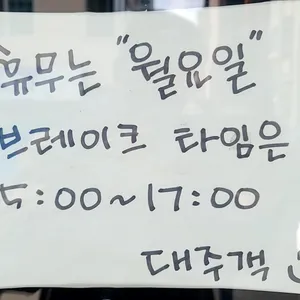 휴무는 "월요일"
브레이크 타임은
5:00~17:00
대주객